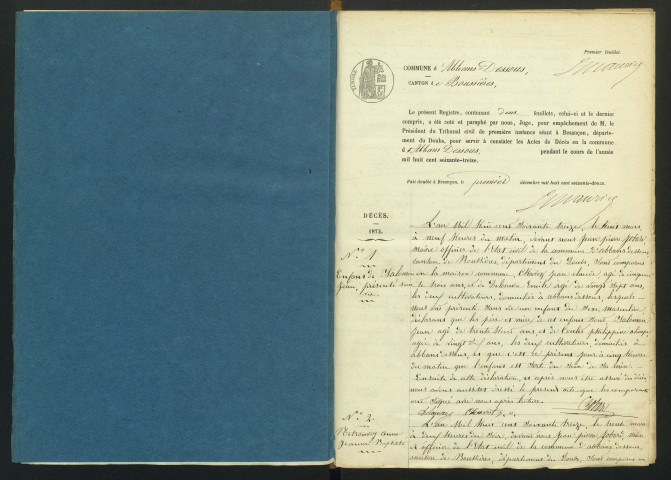 Premier feuillet.
COMMUNE d'Abbans Dessous,
CANTON de Boussières,
Le présent Registre, contenant deux feuillets, celui-ci et le dernier
compris, a été coté et paraphé par nous, Juge, pour empêchement de M. le
Président du Tribunal civil de première instance séant à Besançon, départe-
ment du Doubs, pour servir à constater les Actes de Décès en la commune
d'Abbans Dessous, pendant le cours de l'année
mil huit cent soixante-treize.
Fait double à Besançon, le premier décembre mil huit cent soixante-douze.
DÉCÈS.
1873.
N° 1
Enfant de
Jean, présenté sans
vie.
L'an Mil huit cent soixante treize, le huit mars
à neuf heures du matin, devant nous jean pierre
maire officier de l'Etat civil de la commune d'abbans dessous
canton de Boussières, département du Doubs, sont comparus
en la maison commune, jean claude agé de cinquante
trois ans, et de Emile agé de vingt sept ans,
les deux cultivateurs, domiciliés à abbans dessous, lesquels
nous ont présenté sans vie un enfant du sexe masculin
déclarant que les père et mère de cet enfant sont
jean agé de trente ans, et de philippine
agée de vingt ans, les deux cultivateurs, domiciliés à
abbans dessous, et que c'est le présent jour à cinq heures
du matin que l'enfant est sorti du sein de sa mère.
Ensuite de cette déclaration, et après nous être assuré du décès
nous avons aussitôt dressé le présent acte que les comparants
ont signé avec nous après lecture.
N° 2.
anne
Jeanne Baptiste
L'an Mil huit cent soixante treize, le trente mars
à deux heures du soir, devant nous jean pierre maire
et officier de l'Etat civil de la commune d'abbans dessous,
canton de Boussières, département du Doubs, sont comparus en